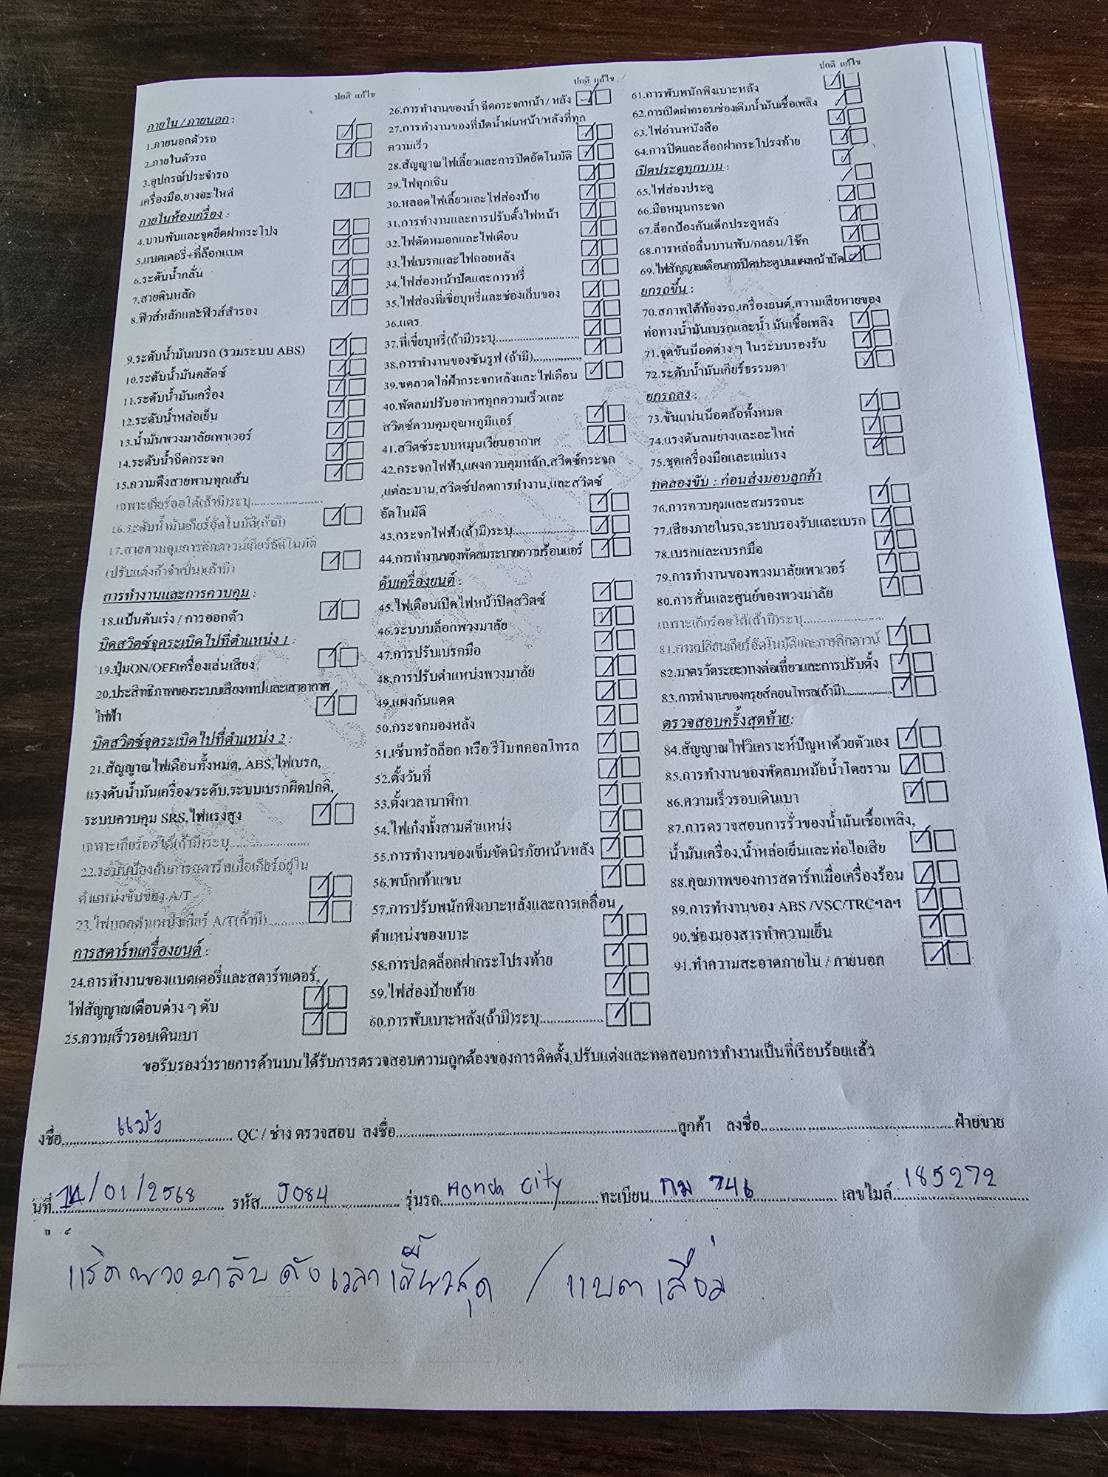 ปกติ แก้ไข
ภายใน / ภายนอก :
1.ภายนอกตัวรถ
2.ภายในตัวรถ
3.อุปกรณ์ประจำรถ
เครื่องมือ,ยางอะไหล่
ภายในห้องเครื่อง :
4.บานพับและจุดยึดฝากระโปง
5.แบตเตอรี่+ที่ล็อกแบต
6.ระดับน้ำกลั่น
7.สายดินหลัก
8.ฟิวส์หลักและฟิวส์สำรอง
9.ระดับน้ำมันเบรก (รวมระบบ ABS)
10.ระดับน้ำมันคลัตช์
11.ระดับน้ำมันเครื่อง
12.ระดับน้ำหล่อเย็น
13.น้ำมันพวงมาลัยเพาเวอร์
14.ระดับน้ำฉีดกระจก
15.ความตึงสายพานทุกเส้น
เฉพาะเกียร์ออโต้(ถ้ามี)ระบุ....................
16.ระดับน้ำมันเกียร์อัตโนมัติ(ถ้ามี)
17.สายควบคุมการคิกดาวน์เกียร์อัตโนมัติ
(ปรับแต่งถ้าจำเป็น)(ถ้ามี)
การทำงานและการควบคุม :
18.แป้นคันเร่ง / การออกตัว
บิดสวิตช์จุดระเบิดไปที่ตำแหน่ง 1 :
19.ปุ่มON/OFFเครื่องเล่นเสียง
20.ประสิทธิภาพของระบบเสียงเทปและเสาอากาศ
ไฟฟ้า
บิดสวิตช์จุดระเบิดไปที่ตำแหน่ง 2 :
21.สัญญาณไฟเตือนทั้งหมด, ABS,ไฟเบรก,
แรงดันน้ำมันเครื่อง/ระดับ,ระบบเบรกผิดปกติ,
ระบบควบคุม SRS,ไฟแรงสูง
เฉพาะเกียร์ออโต้(ถ้ามี)ระบุ....................
22.ระบบป้องกันการสตาร์ทเมื่อเกียร์อยู่ใน
ตำแหน่งขับของ A/T
23.ไฟบอกตำแหน่งเกียร์ A/T(ถ้ามี)..........
การสตาร์ทเครื่องยนต์ :
24.การทำงานของแบตเตอรี่และสตาร์ทเตอร์,
ไฟสัญญาณเตือนต่าง ๆ ดับ
25.ความเร็วรอบเดินเบา
ปกติ แก้ไข
26.การทำงานของน้ำ ฉีดกระจกหน้า / หลัง
27.การทำงานของที่ปัดน้ำฝนหน้า/หลังที่ทุก
ความเร็ว
28.สัญญาณไฟเลี้ยวและการปิดอัตโนมัติ
29.ไฟฉุกเฉิน
30.หลอดไฟเลี้ยวและไฟส่องป้าย
31.การทำงานและการปรับตั้งไฟหน้า
32.ไฟตัดหมอกและไฟเตือน
33.ไฟเบรกและไฟถอยหลัง
34.ไฟส่องหน้าปัดและการหรี่
35.ไฟส่องที่เขี่ยบุหรี่และช่องเก็บของ
36.แตร
37.ที่เขี่ยบุหรี่(ถ้ามี)ระบุ....................
38.การทำงานของซันรูฟ (ถ้ามี)................
39.ขดลวดไล่ฝ้ากระจกหลังและไฟเตือน
40.พัดลมปรับอากาศทุกความเร็วและ
สวิตช์ควบคุมอุณหภูมิแอร์
41.สวิตช์ระบบหมุนเวียนอากาศ
42.กระจกไฟฟ้า,แผงควบคุมหลัก,สวิตช์กระจก
,แต่ละบาน,สวิตช์ปลดการทำงาน,และสวิตช์
อัตโนมัติ
43.กระจกไฟฟ้า(ถ้ามี)ระบุ....................
44.การทำงานของพัดลมระบายความร้อนแอร์
ดับเครื่องยนต์ :
45.ไฟเตือนเปิดไฟหน้าปิดสวิตช์
46.ระบบบล็อกพวงมาลัย
47.การปรับเบรกมือ
48.การปรับตำแหน่งพวงมาลัย
49.แผงกันแดด
50.กระจกมองหลัง
51.เซ็นทรัลล็อก หรือรีโมทคอลโทรล
52.ตั้งวันที่
53.ตั้งเวลานาฬิกา
54.ไฟเก๋งทั้งสามตำแหน่ง
55.การทำงานของเข็มขัดนิรภัยหน้า/หลัง
56.พนักเท้าแขน
57.การปรับพนักพิงเบาะหลังและการเคลื่อน
ตำแหน่งของเบาะ
58.การปลดล็อกฝากระโปรงท้าย
59.ไฟส่องป้ายท้าย
60.การพับเบาะหลัง(ถ้ามี)ระบุ....................
ปกติ แก้ไข
61.การพับพนักพิงเบาะหลัง
62.การเปิดฝาครอบช่องเติมน้ำมันเชื้อเพลิง
63.ไฟอ่านหนังสือ
64.การปิดและล็อกฝากระโปรงท้าย
เปิดประตูทุกบาน :
65.ไฟส่องประตู
66.มือหมุนกระจก
67.ล็อกป้องกันเด็กประตูหลัง
68.การหล่อลื่นบานพับ/กลอน/โช๊ก
69.ไฟสัญญาณเตือนการปิดประตูบนแผงหน้าปัด
ยกรถขึ้น :
70.สภาพใต้ท้องรถ,เครื่องยนต์,ความเสียหายของ
ท่อทางน้ำมันเบรกและน้ำ มันเชื้อเพลิง
71.จุดขันน๊อตต่าง ๆ ในระบบรองรับ
72.ระดับน้ำมันเกียร์ธรรมดา
ยกรถลง :
73.ขันแน่นน็อตล้อทั้งหมด
74.แรงดันลมยางและอะไหล่
75.ชุดเครื่องมือและแม่แรง
ทดลองขับ : ก่อนส่งมอบลูกค้า
76.การควบคุมและสมรรถนะ
77.เสียงภายในรถ,ระบบรองรับและเบรก
78.เบรกและเบรกมือ
79.การทำงานของพวงมาลัยเพาเวอร์
80.การสั่นและศูนย์ของพวงมาลัย
เฉพาะเกียร์ออโต้(ถ้ามี)ระบุ....................
81.การเปลี่ยนเกียร์อัตโนมัติและการคิกดาวน์
82.มาตรวัดระยะทางต่อเที่ยวและการปรับตั้ง
83.การทำงานของครุยส์คอนโทรล(ถ้ามี)..............
ตรวจสอบครั้งสุดท้าย:
84.สัญญาณไฟวิเคราะห์ปัญหาด้วยตัวเอง
85.การทำงานของพัดลมหม้อน้ำโดยรวม
86.ความเร็วรอบเดินเบา
87.การตรวจสอบการรั่วของน้ำมันเชื้อเพลิง,
น้ำมันเครื่อง,น้ำหล่อเย็นและท่อไอเสีย
88.คุณภาพของการสตาร์ทเมื่อเครื่องร้อน
89.การทำงานของ ABS /VSC/TRCฯลฯ
90.ช่องมองสารทำความเย็น
91.ทำความสะอาดภายใน / ภายนอก
ขอรับรองว่ารายการด้านบนได้รับการตรวจสอบความถูกต้องของการติดตั้ง,ปรับแต่งและทดสอบการทำงานเป็นที่เรียบร้อยแล้ว
งชื่อ........แม้ว........QC / ช่าง ตรวจสอบ ลงชื่อ....................ลูกค้า ลงชื่อ....................ฝ่ายขาย
นที่ 14/01/2568 รหัส J084 รุ่นรถ Honda City ทะเบียน กม 746 เลขไมล์ 185272
แร็คพวงมาลัยดังเวลาเลี้ยวสุด / แบตเสื่อม